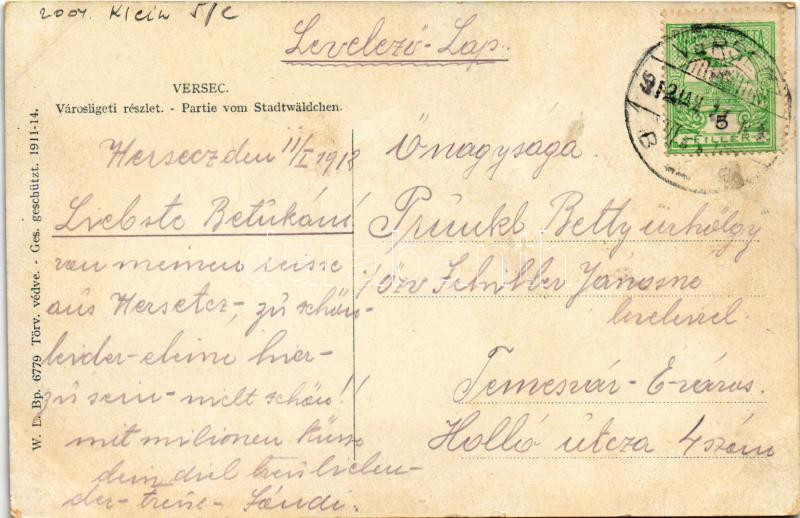 2004. Klein 5/C
Levelező-Lap.
VERSEC.
Városligeti részlet. - Partie vom Stadtwäldchen.
W. L. Bp. 6779 Törv. védve. - Ges. geschützt. 1911-14.
5
FILLER
Herseczden 11/I 1912
Liebste Betukám
von meinen reisse
aus Hersetcz, zu schön
leider-eleine hier-
zu sein-nicht schön!!
mit milionen Küsse
dein treulieben-
der-treue- Sándi.
Őnagysága
Prünkl Betty urhölgy
özv Schiller Jánosné
levelével.
Temesvár-E-város.
Holló utcza 4 szám